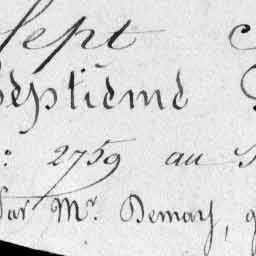 Sept
Septième
: 2759 au
Par Mr. Demay,